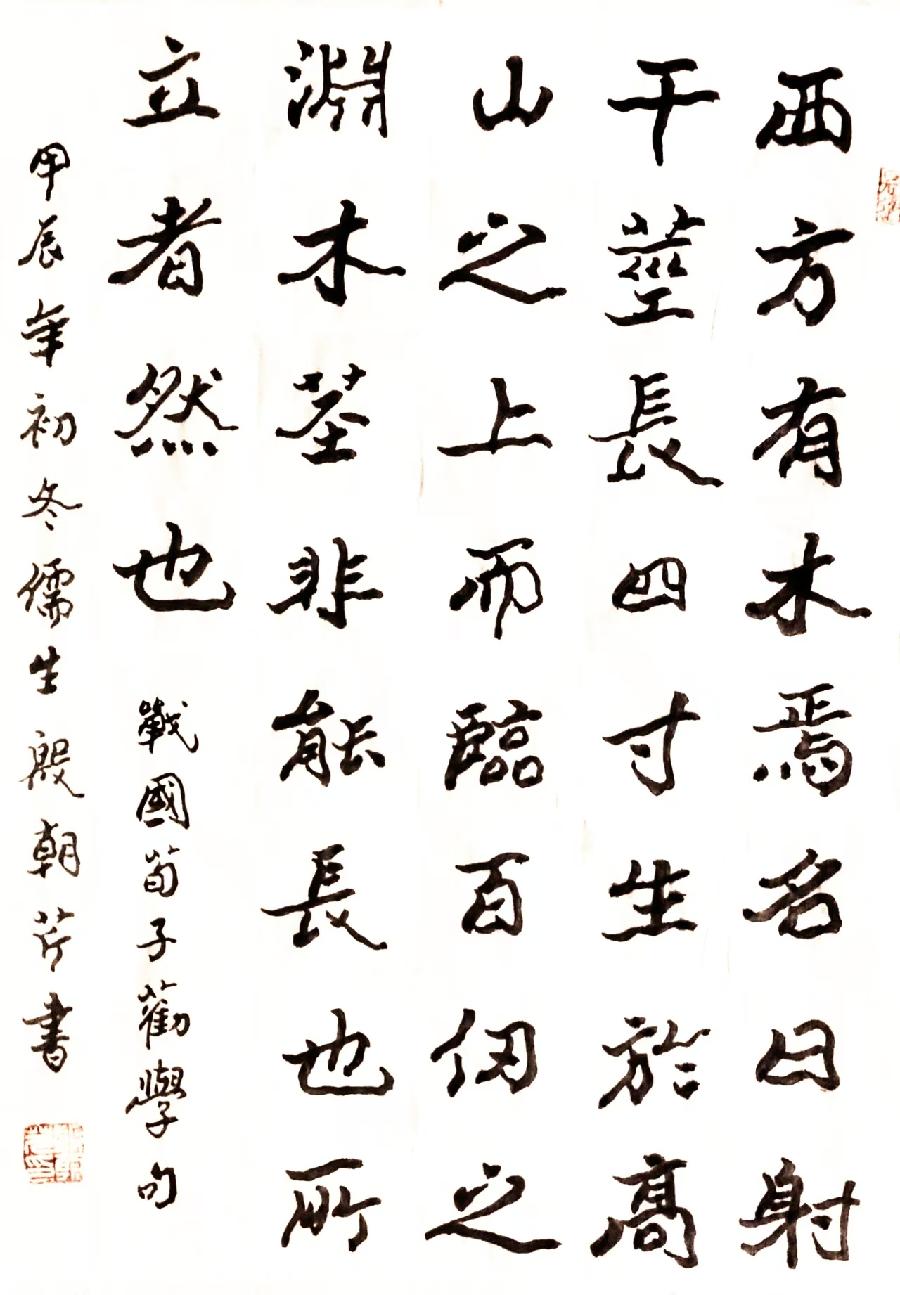 西方有木焉名曰射
干莖長四寸生於高
山之上而臨百仞之
淵木莖非能長也所
立者然也 戰國荀子勸學句
甲辰年初冬儒生殷朝芹書